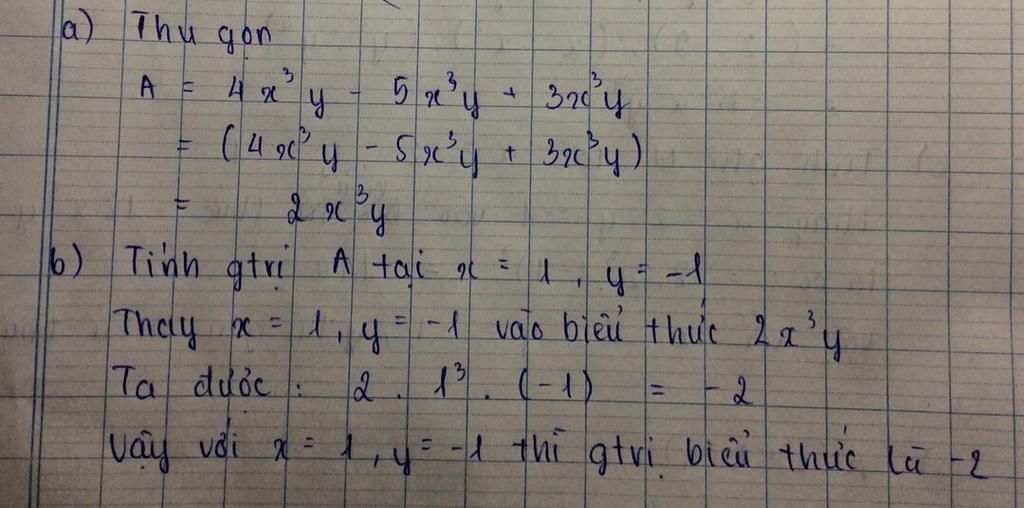 a) Thu gọn
A = 4x³y - 5x³y + 3x³y
= (4x³y - 5x³y + 3x³y)
= 2x³y
b) Tính gtrị A tại x = 1, y = -1
Thay x = 1, y = -1 vào biểu thức 2x³y
Ta được: 2 . 1³ . (-1) = -2
Vậy với x = 1, y = -1 thì gtrị biểu thức là -2